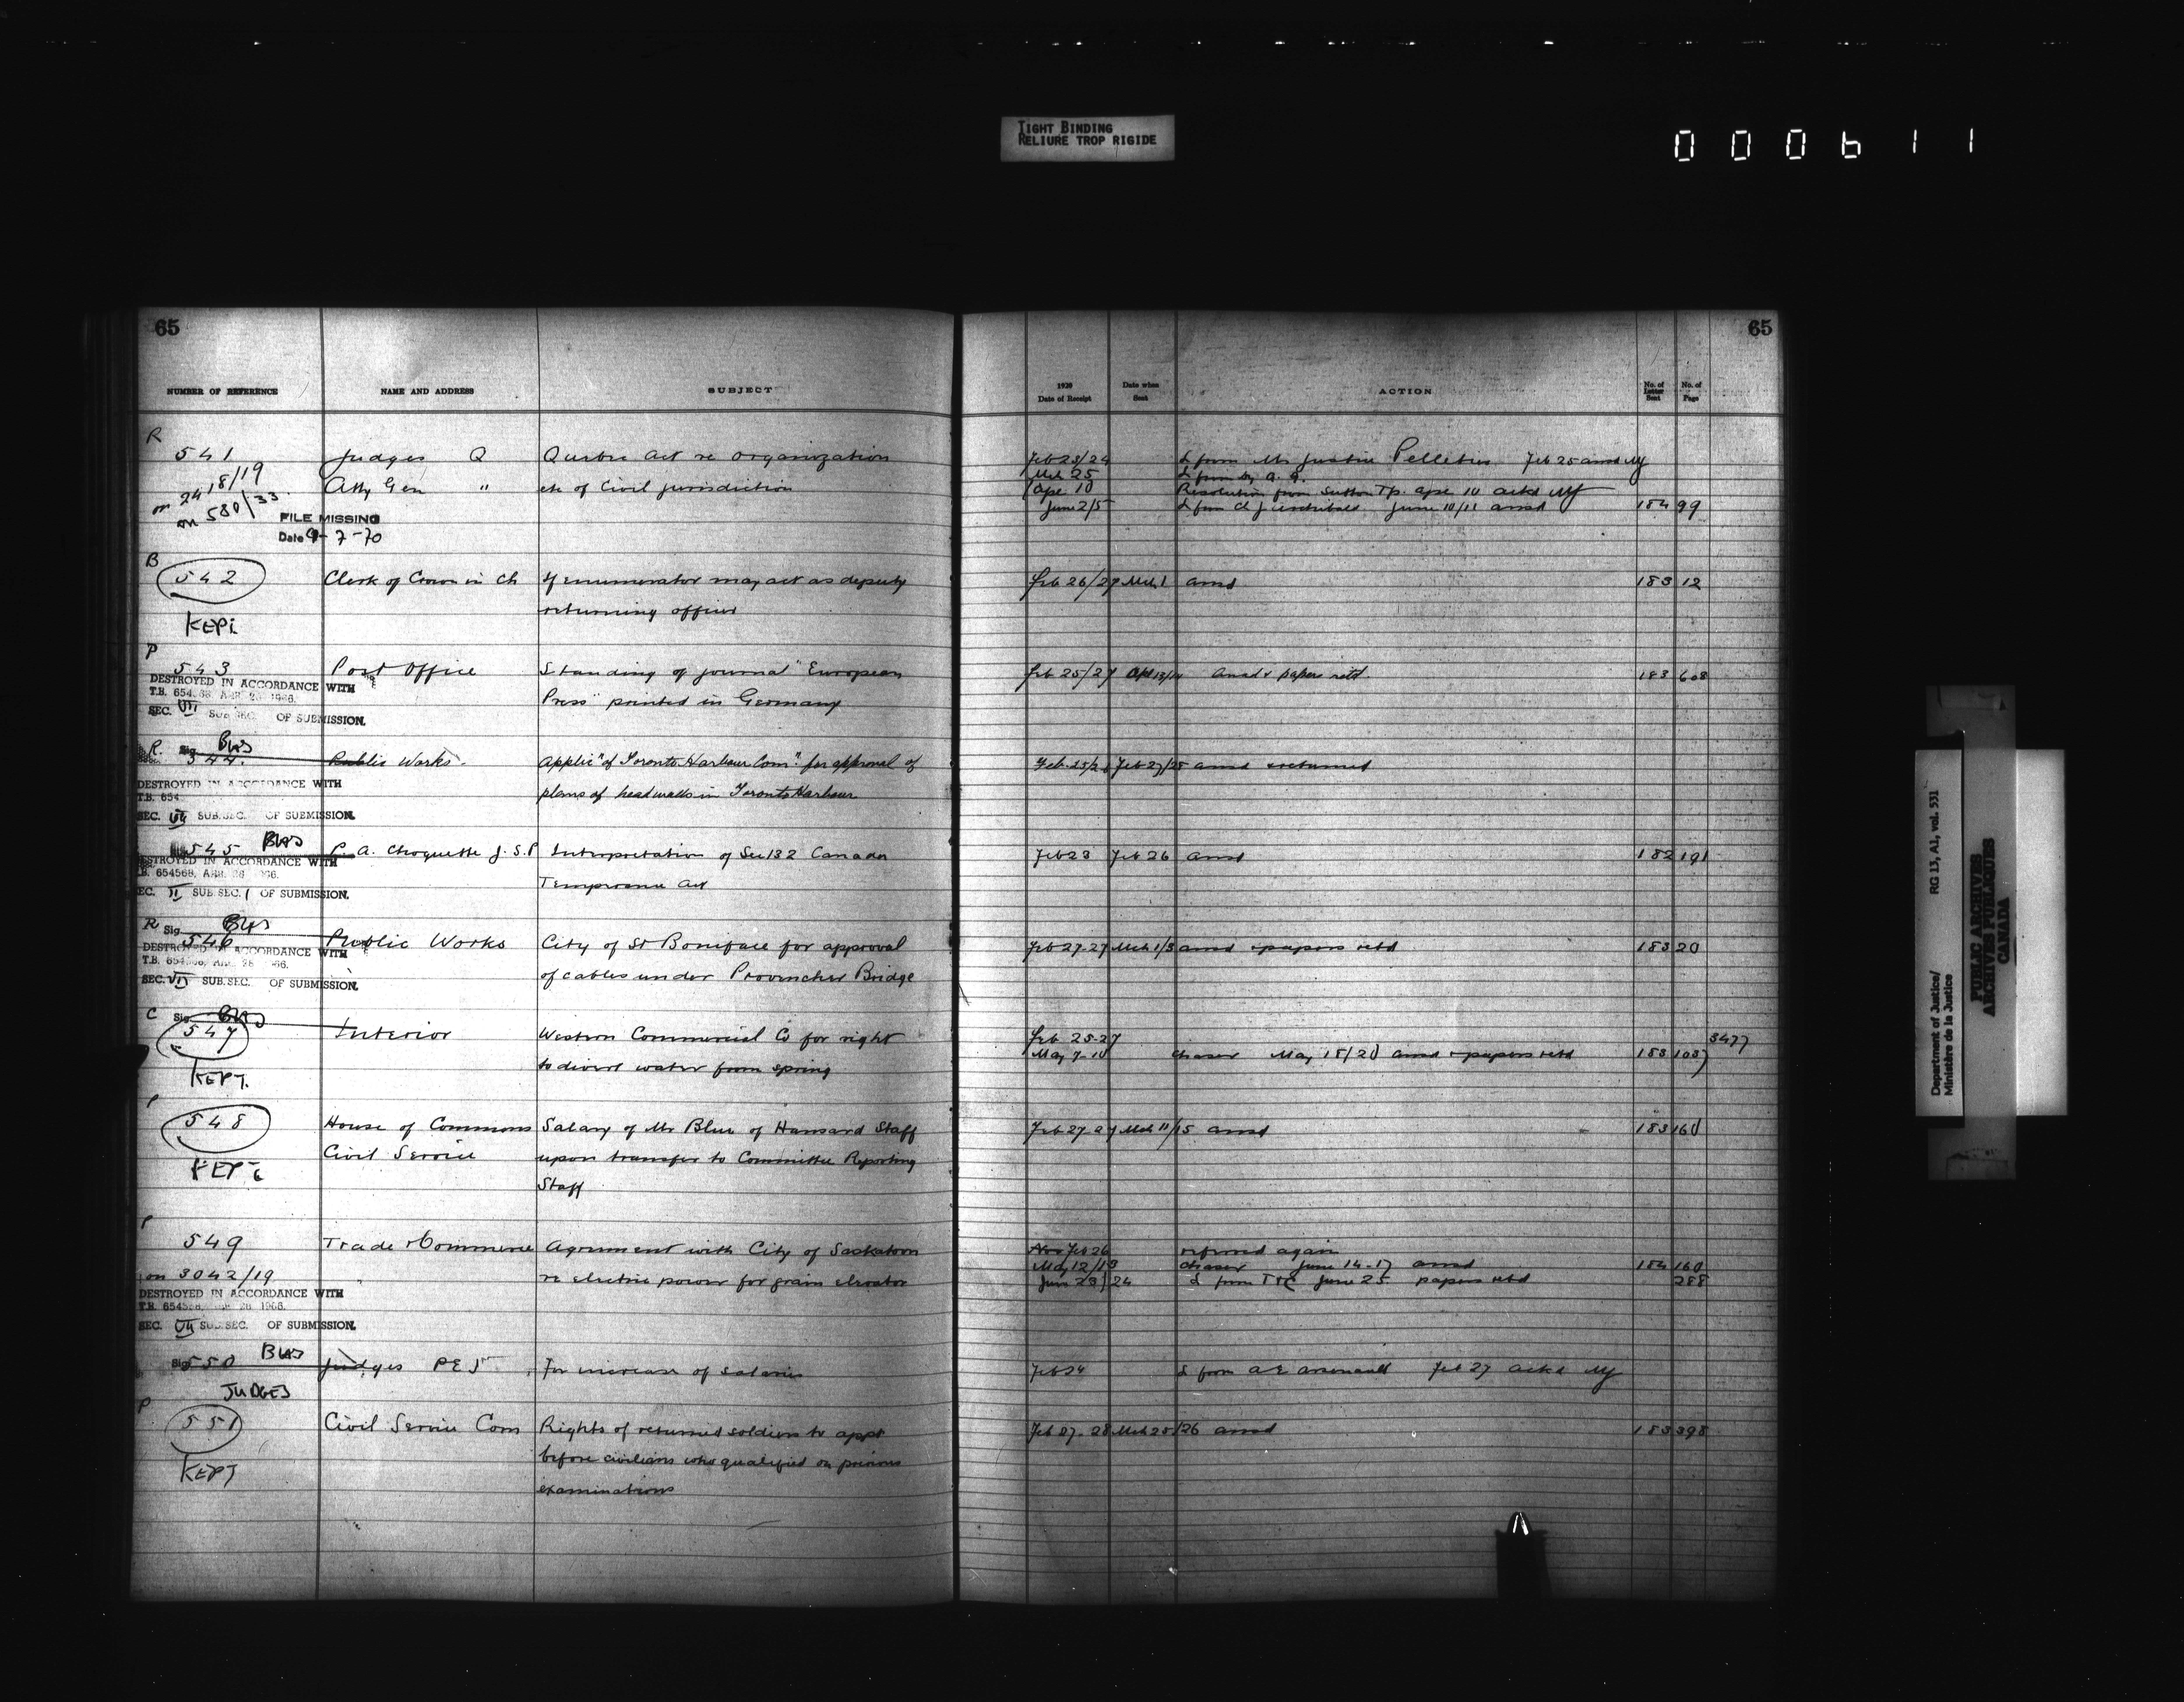 TIGHT BINDING
RELIURE TROP RIGIDE
000611
65
65
NUMBER OF REFERENCE NAME AND ADDRESS SUBJECT
1920 Date of Receipt Date when Sent ACTION No. of Letter Sent No. of Page
R
541 Judges Q Quebec Act re organization Feb 23/24 L from Mr Justice Pelletier Feb 25 ansd MJ
2418/19 Atty Gen " etc of Civil jurisdiction Mch 25 L from Dy A. G.
on 580/33 Apr 10 Resolution from Sutton Tp. Apr 10 ackd MJ
June 2/5 L from June 10/11 ansd 184 99
FILE MISSING
Date 9-7-70
B
542 Clerk of Crown in Ch If enumerator may act as deputy Feb 26/27 Mch 1 ansd 183 12
returning officer
KEPT
P
543 Post Office Standing of journal "European Feb 25/27 Apl 13/14 Ansd & papers retd. 183 608
Press" printed in Germany
DESTROYED IN ACCORDANCE WITH
T.B. 654568 APR. 28 1966.
SEC. VII SUB SEC. OF SUBMISSION.
Sig BWS
R.
544. Public Works. Applic" of Toronto Harbour Com" for approval of Feb. 25/26 Feb 27/28 ansd & returned
plans of headwalls in Toronto Harbour
DESTROYED IN ACCORDANCE WITH
T.B. 654
SEC. VII SUB. SEC. OF SUBMISSION.
BWS
545 P. A. Choquette J.S.P Interpretation of Sec 132 Canada Feb 23 Feb 26 ansd 182 191
Temperance Act
DESTROYED IN ACCORDANCE WITH
T.B. 654568, APR. 28 1966.
SEC. II SUB SEC. 1 OF SUBMISSION.
Sig BWS
R
546 Public Works City of St Boniface for approval Feb 27-27 Mch 1/3 ansd & papers retd 183 20
of cables under Provencher Bridge
DESTROYED IN ACCORDANCE WITH
T.B. 654568, APR. 28 1966.
SEC. VII SUB. SEC. OF SUBMISSION.
Sig BWS
C
547 Interior Western Commercial Co for right Feb 25-27 3477
to divert water from spring May 7-10 chaser May 15/20 ansd & papers retd 183 1037
KEPT.
P
548 House of Commons Salary of Mr Blue of Hansard Staff Feb 27-27 Mch 11/15 ansd 183 160
Civil Service upon transfer to Committee Reporting
Staff
KEPT
P
549 Trade & Commerce Agreement with City of Saskatoon Nov Feb 26 referred again
on 3042/19 re electric power for grain elevator May 12/13 chaser June 14-17 ansd 184 160
June 23/24 L from T&C June 25 papers retd 288
DESTROYED IN ACCORDANCE WITH
T.B. 654568, APR. 28 1966.
SEC. VII SUB. SEC. OF SUBMISSION.
Sig BWS
550 Judges P E I For increase of salaries Feb 24 L from A E Arsenault Feb 27 ackd MJ
JUDGES
P
551 Civil Service Com Rights of returned soldiers to appt Feb 27-28 Mch 25/26 ansd 183 398
before civilians who qualified on previous
examinations
KEPT
Department of Justice/ RG 13, A1, vol. 531
Ministère de la Justice
PUBLIC ARCHIVES
ARCHIVES PUBLIQUES
CANADA